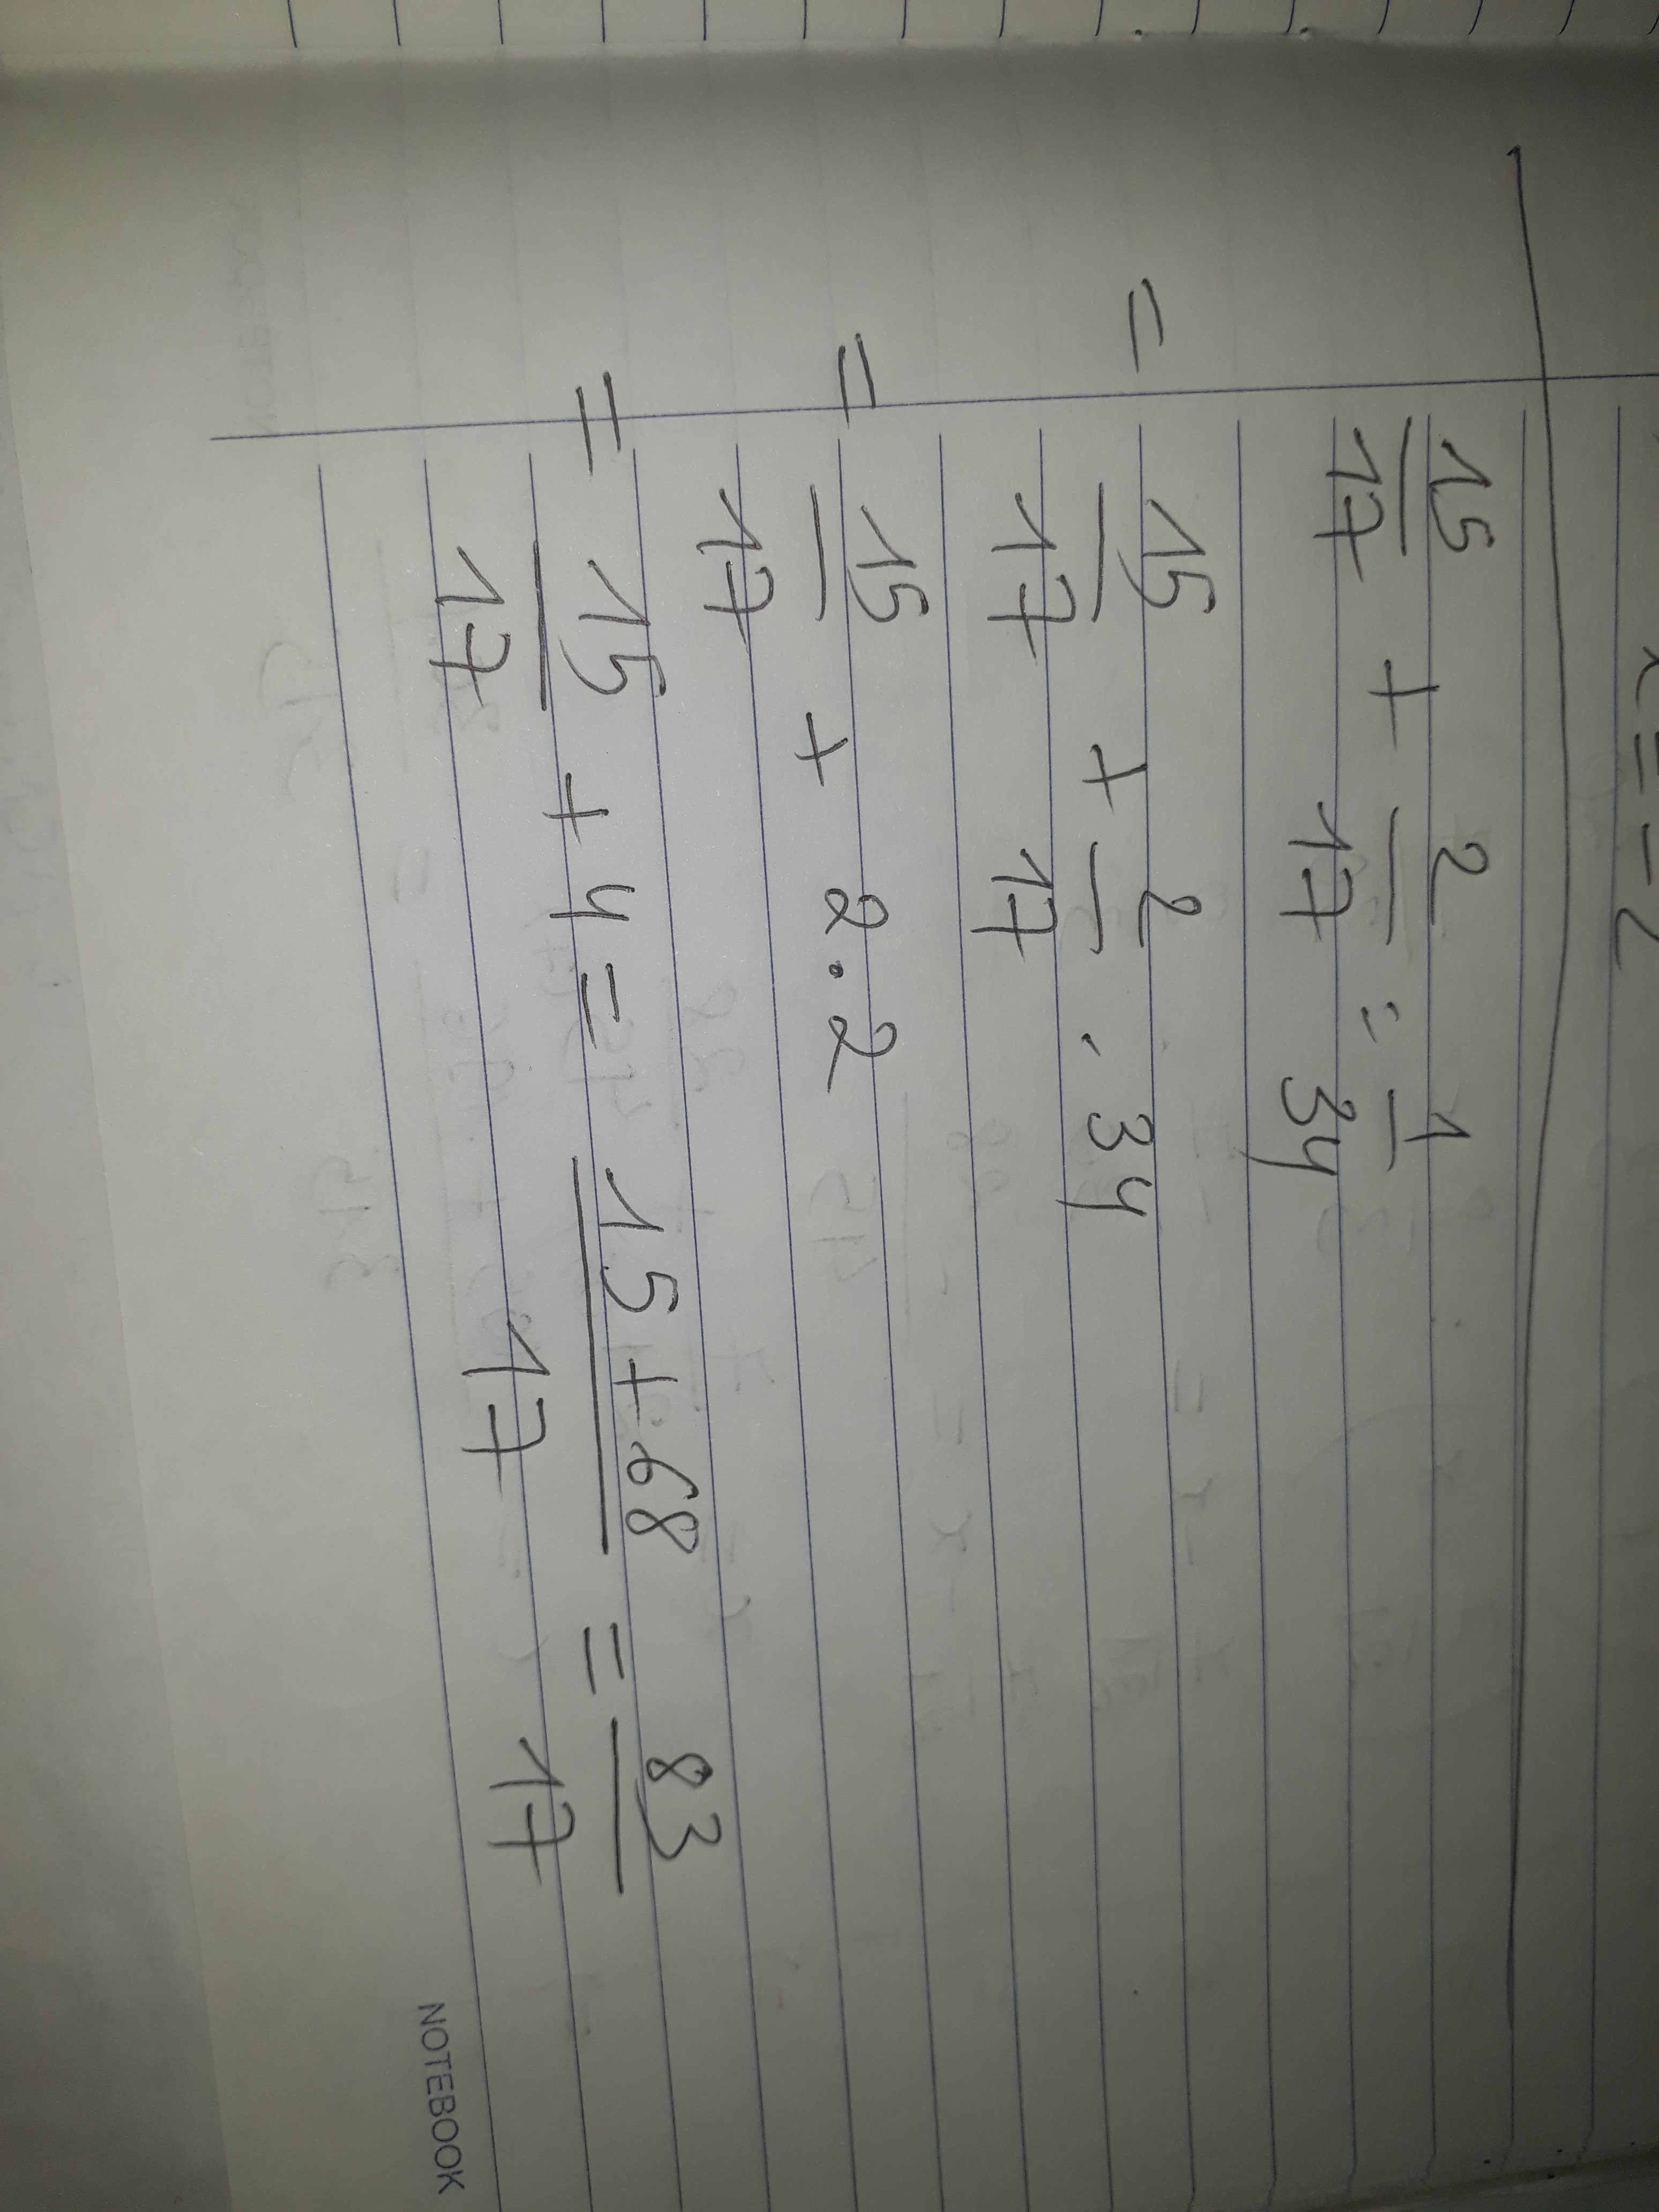 x = -2
15/17 + 2/17 : 1/34
= 15/17 + 2/17 · 34
= 15/17 + 2·2
= 15/17 + 4 = (15+68)/17 = 83/17
NOTEBOOK